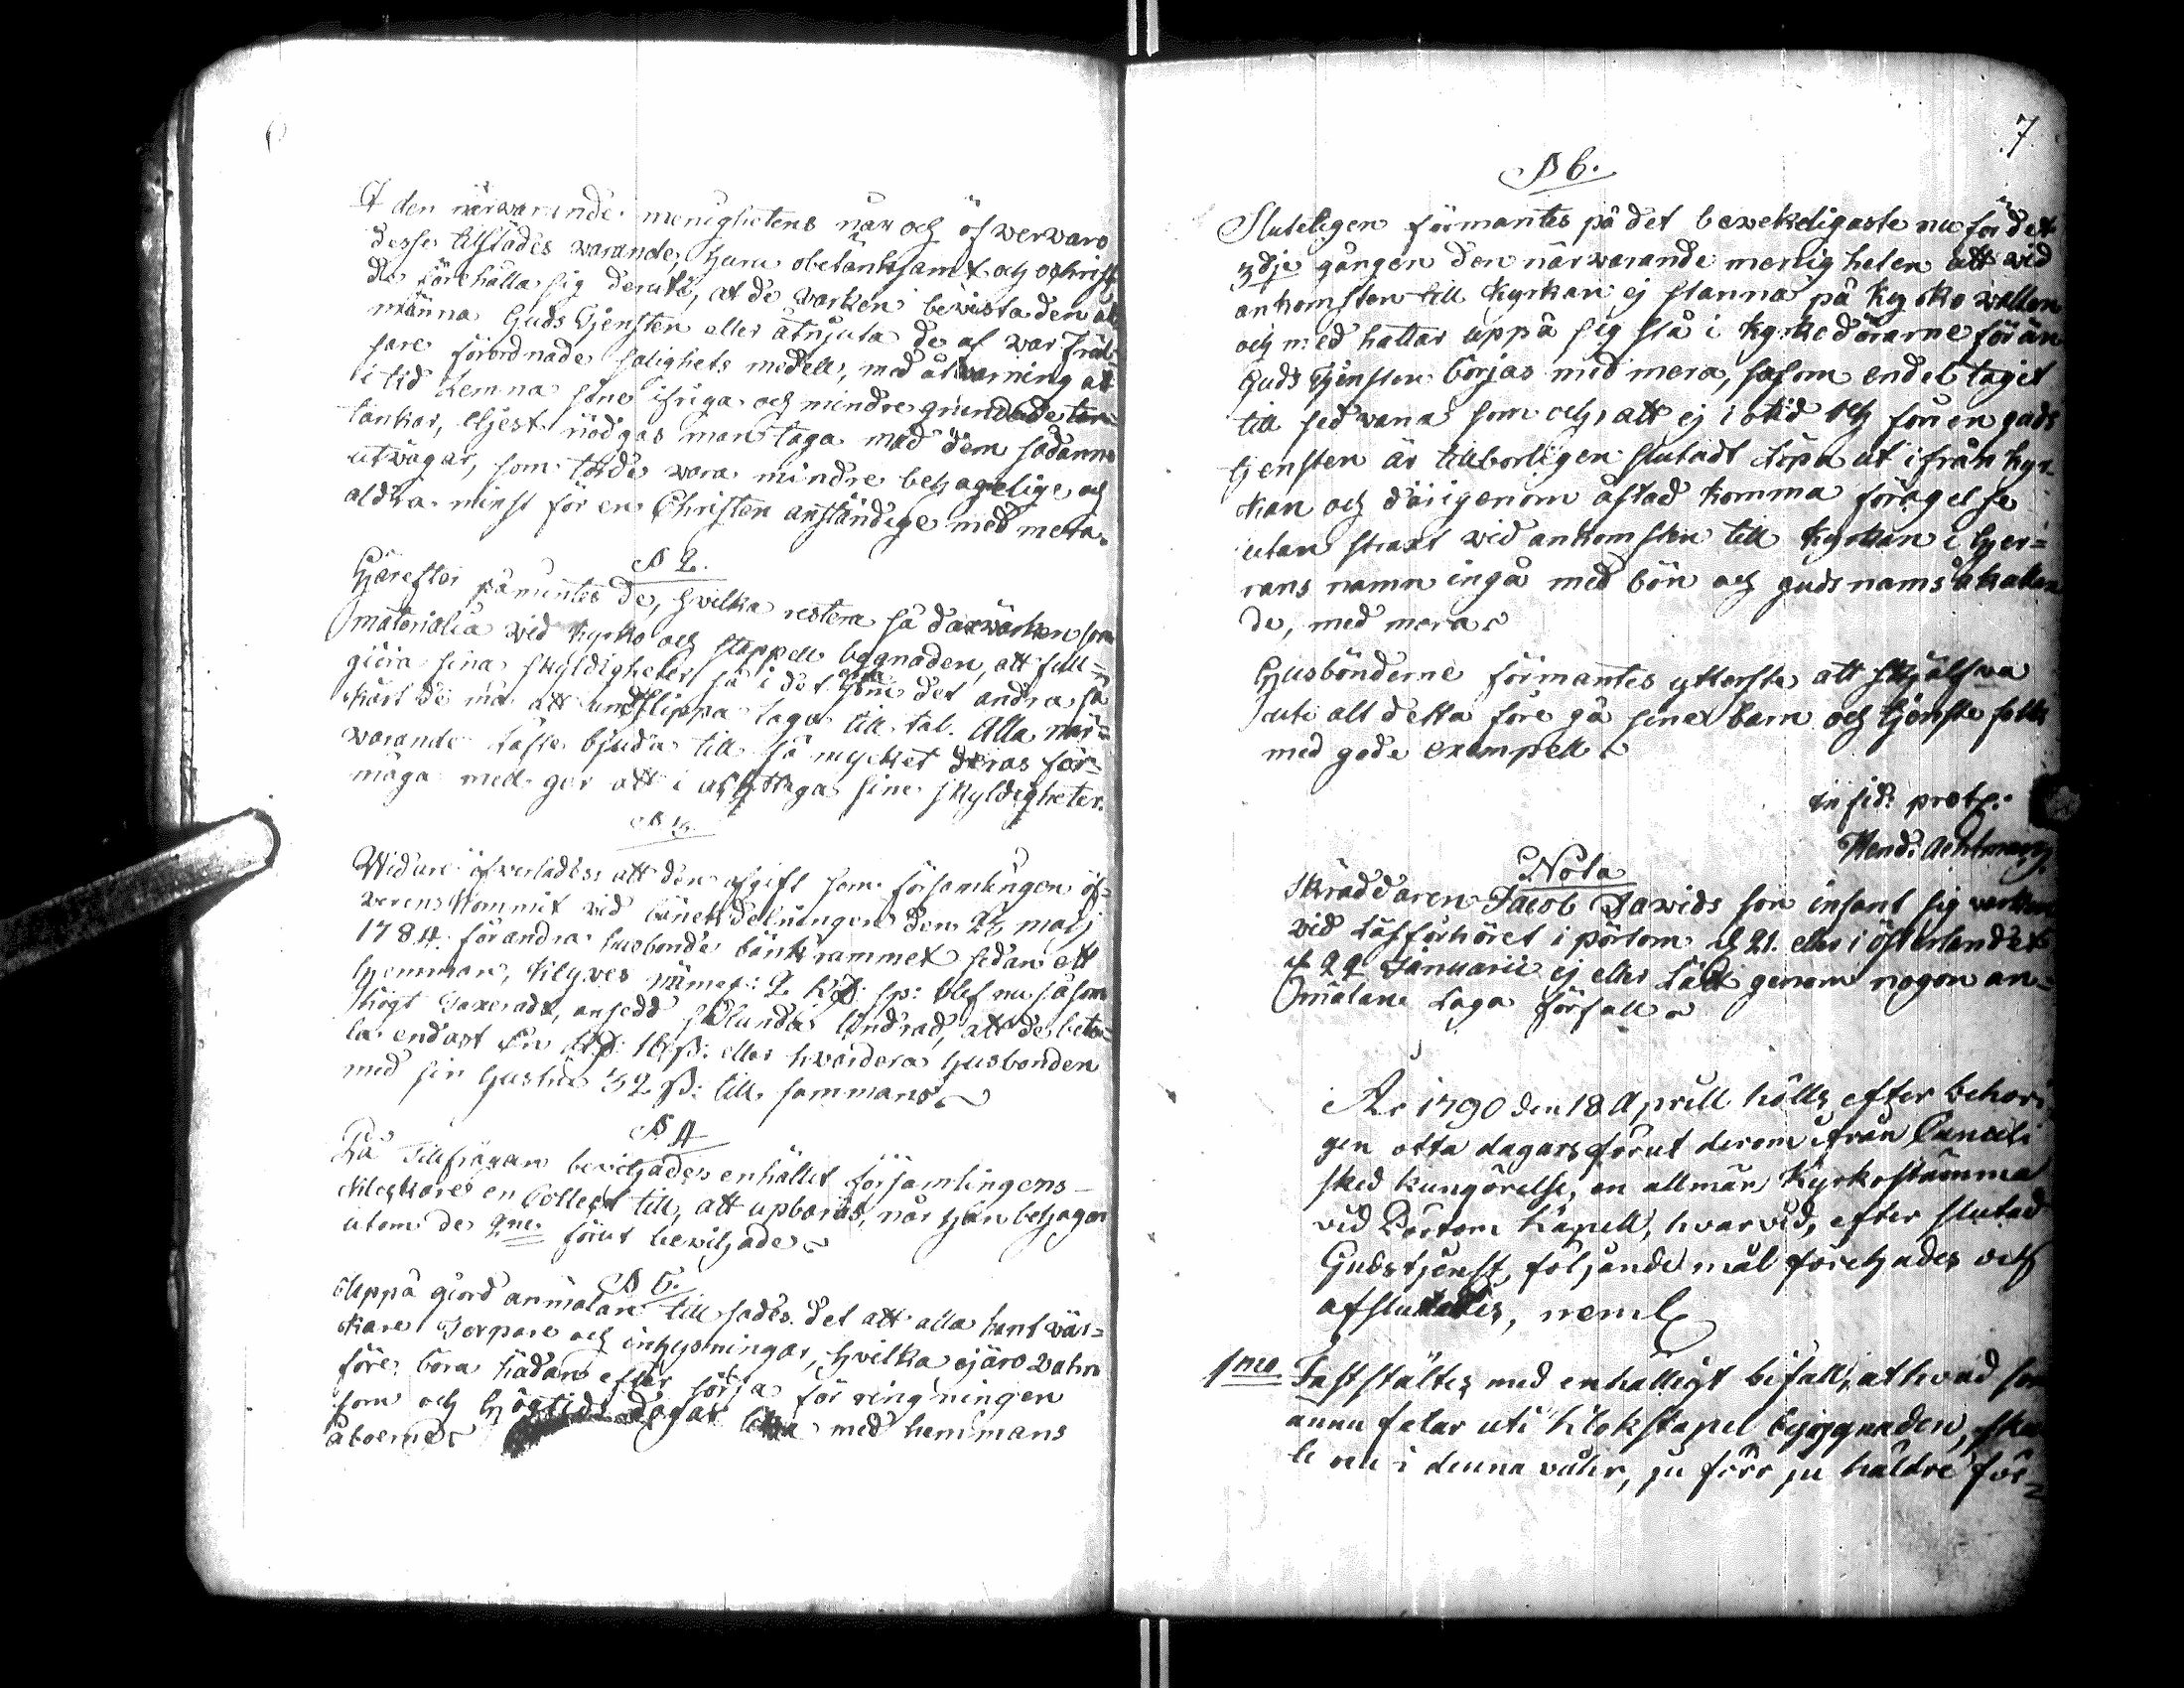 I den närwarande menighetens när och öfwerwaro
desse tilstädes warande, huru obetänksamt och ochrist
de förehålla sig derute, at de warken bewista den al
männa Guds Tjensten eller åtnjuta de af war Fräl
sare förordnade salighets medell, med åtwarning at
i tid lemna sine ifriga och mindre grundade tan
tankar, eljest nödgas man taga med dem sådanne
utwägar, som torde wara mindre behagelige och
aldra minst för en Christen anständige med mera.
§ 2.
Härefter påmintes de, hwilka restera så dagswärken som
materialia wid Kyrko och stappell bygnaden, att full=
giöra sina skyldigheter så i det ena som det andra så
kärt de må att undslippa laga till tal. Alla när=
warande låfte bjuda till så mycket deras för=
måga med ger att i akttaga sine skyldigheter.
§ 3.
Widare öfverlades att den afgift som församlingen öf=
verens kommit vid bänekdelningen den 26 maij
1784 för andra husbonde bänkrummet sedan ett
hemman, tilgves nämnl: 2 Rd: sp: blef nu såsom
högt Taxeradt, ansedd sålunda lindrad, att de beta=
la endast En Rd: 16 ß: eller hwardera husbonden
med sin hustru 32 ß: till sammans
§ 4
På Tillfrågan beviljades enhällit församlingens
klockare en Collect till, att upbäras, när han behagar
utom de 2ne förut bewiljade
§ 5.
Uppå giord anmälan till sades det att alla hant vär=
kare Torpare och inhysningar, hvilka ej äro Rahn
före, böra hädan efter sörja för ringningen
som och högtids dagar lika med hemmans
åboerne
7
§ 6.
Sluteligen förmantes på det bewekeligaste nu för det
3dje gången den närwarande menigheten att wid
ankomsten till Kyrkan ej stanna på Kyrko wallen
och med hattar uppå sig stå i kyrkodörarne förän
Guds Tjensten börjas med mera, såsom endel taget
till sed wana som och, att ej i otid och förr en guds
tjensten är tillborligen slutadt löpa ut ifrån kyr
kan och därigenom åstad komma förargelse
utan straxt wid ankomsten till kyrkan i her=
rans namn ingå med bön och guds nams åkallan
de, med mera
Husbönderne förmantes ytterste att sjelfwa
uti alt detta före gå sina barn och tjenste folk
med gode exempell
in fid: prot:
Hend: Achtman
Nota
Skräddaren Jacob Dawids son infant sig varken
vid Läsförhöret i pörtom d 21. eller i Österlandet
d 22 Januarii ej eller Lätt genom nogon an=
mälan laga förfall
År 1790 den 18 Aprill hölls efter behöri
gen otta dagars förut derom ifrån Cancelli
sked kungörelse, en allmän Kyrkostämma
vid Pörtom Kapell, hvarvid, efter slutad
Gudstjenst, följande mål företogades och
afslutades, neml
1mo Fastställtes med enhälligt bifall, at hvad som
annu felar uti klokstapel byggnaden, ska
le ock i denna våhr, ju förr ju häldre för=